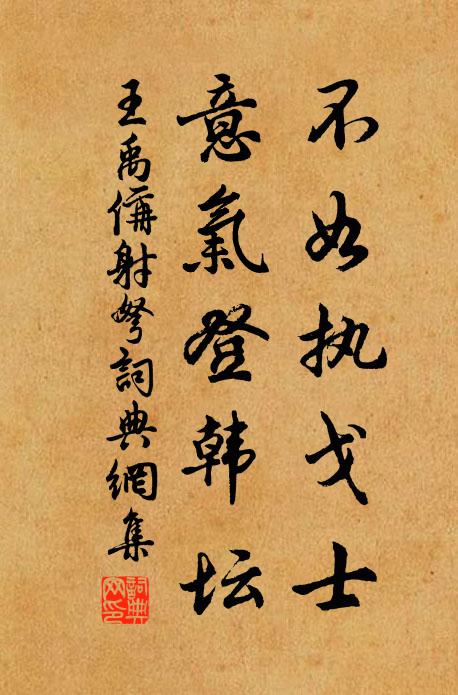 不如执戈士
意氣登韩坛
王禹偁射弩詞典網集
詞典網印